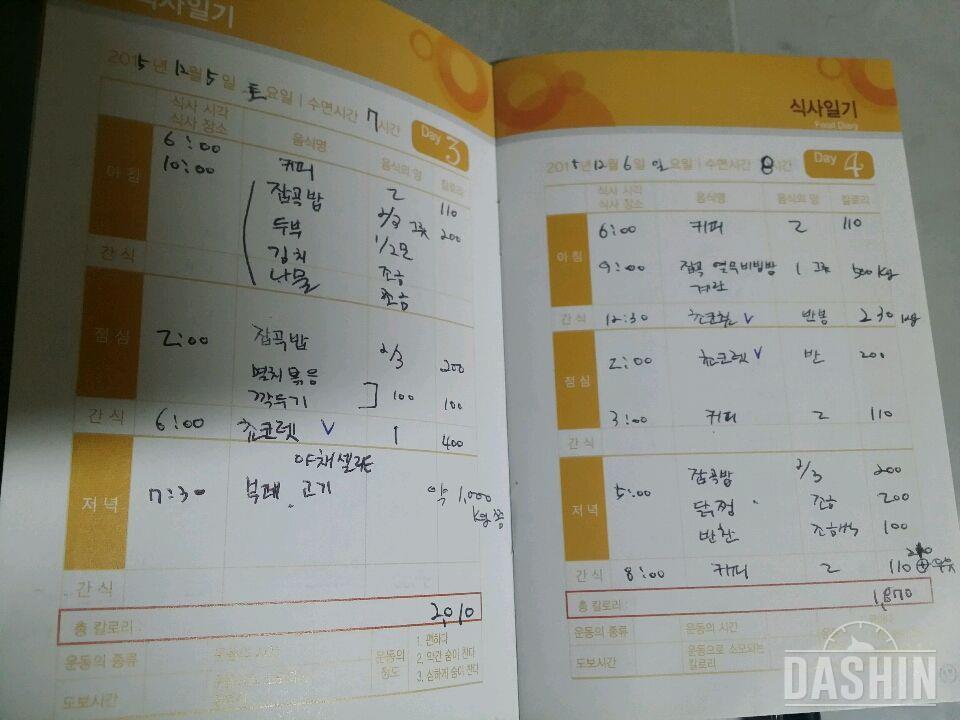 식사일기
2015년 12월 5일 토요일 | 수면시간 7시간
Day 3
식사 시각 음식명 음식의 양 칼로리
식사 장소
아침 6:00 커피 2 110
10:00 잡곡밥 2/3 그릇 200
두부 1/2모
김치 조금
나물 조금
간식
점심 2:00 잡곡밥 2/3 200
멸치볶음
깍두기 100 100
간식 6:00 쵸코렛 V 1 400
야채샐러드
저녁 7:30 부페. 고기 약 1,000
kg쯤
간식
총 칼로리 : 2,010
운동의 종류 운동의 시간 운동의 정도 1. 편하다
2. 약간 숨이 찬다
3. 심하게 숨이 찬다
도보시간
식사일기
Food Diary
2015년 12월 6일 일요일 | 수면시간 8시간
Day 4
식사 시각 음식명 음식의 양 칼로리
식사 장소
아침 6:00 커피 2 110
9:00 잡곡 열무비빔밥 1 그릇 500kg
계란
간식 12:30 쵸코렛 V 반봉 230 kg
점심 2:00 쵸코렛 V 반 200
3:00 커피 2 110
간식
저녁 5:00 잡곡밥 2/3 200
닭찜 조금 200
반찬 조금씩 100
간식 8:00 커피 2 110 + 우유
총 칼로리 : 1,870
운동의 종류 운동의 시간
도보시간 운동으로 소모되는
칼로리
DASHIN